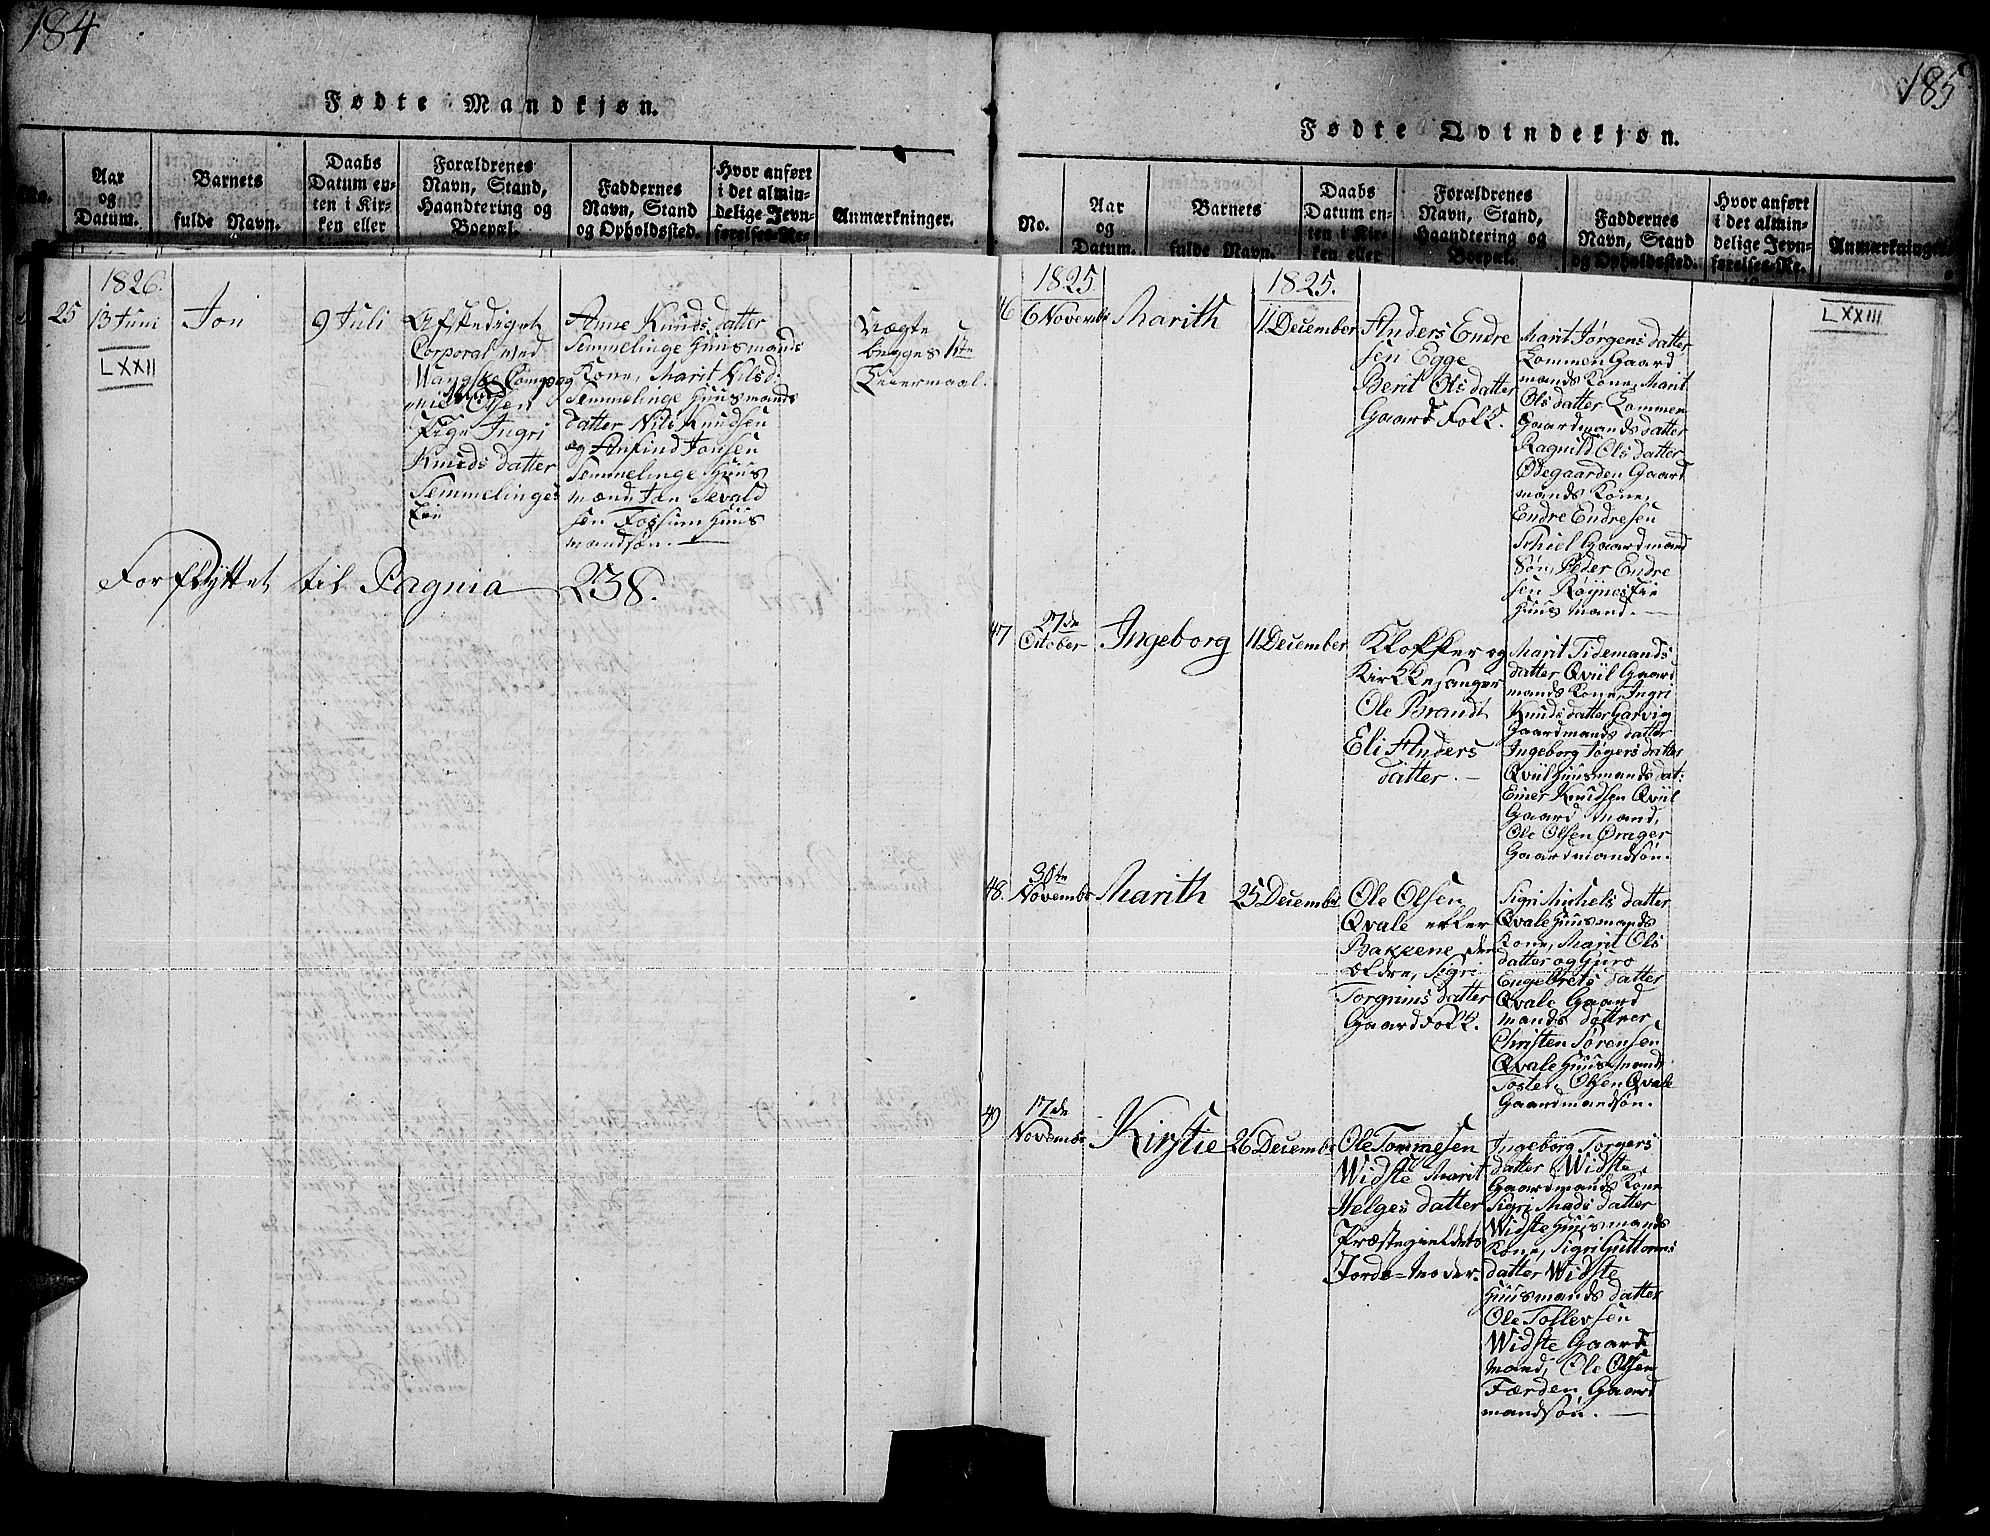 184
Fødte Mandkjøn.
No.
Aar
og
Datum.
Barnets
fulde Navn.
Daabs
Datum en-
ten i Kir-
ken eller
Forældrenes
Navn, Stand,
Haandtering og
Boepæl.
Faddernes
Navn, Stand
og Opholdssted.
Hvor anført
i det almin-
delige Jevn-
førelses-Re-
Anmærkninger.
1826.
25
13 Juni
LXXII
Jon
9 Juli
Afskediget
Corporal ved
Wangske Compagg
Olsen
Pige Ingri
Knuds datter
Semmelinges
Eie
Anne Knuds datter
Semmelinge Huusmands
Kone, Marit Nilsd:
Semmelinge Huusmands
datter Nils Knudsen
og Arfind Jonsen
Semmelinge Huus
mænd, Jan Sevald
sen Fossum Huus
mandsøn.
Nægte
begges 1ste
Leiermaal.
Forflyttet til Pagnia 238.
185
Fødte Qvindekjøn.
No.
Aar
og
Datum.
Barnets
fulde Navn.
Daabs
Datum en-
ten i Kir-
ken eller
Forældrenes
Navn, Stand,
Haandtering og
Boepæl.
Faddernes
Navn, Stand
og Opholdssted.
Hvor anført
i det almin-
delige Jevn-
førelses-Re-
Anmærkninger
LXXIII
1825
1825.
46
6 Novembr
Marith
11 December
Anders Endre
sen Egge
Berit Ols datter
Gaard Folk.
Marit Jørgens datter
Lommen Gaard
mands Kone, Marit
Ols datter Lommen
Gaardmands datter
Ragnild Ols datter
Ødegaarden Gaard
mands Kone,
Endre Endresen
Schiel Gaardmand
Søn, Peder Endre
sen Røynes Eie
Huus mand.
47
27de
October
Ingeborg
11 December
Klokker og
Kirkesanger
Ole Brandt
Eli Anders
datter.
Marit Tidemands
datter Qviil Gaard
mands Kone, Ingri
Knuds datter Garvig
Gaardmands datter
Ingeborg Tøgers datter
Qviil Huusmands dat:
Einer Knudsen Qviil
Gaard mand,
Ole Olsen Ørager
Gaardmandsøn.
48.
30te
Novembr
Marith
25 Decembr
Ole Olsen
Qvale efter
Bakkene den
ældre, Sigri
Torgrims datter
Gaard Folk.
Sigri Michels datter
Qvale Huusmands
Kone, Marit Ols
datter og Guro
Engebrets datter
Qvale Gaard
mands døttrer
Christen Sørensen
Qvale Huus mand
Tosten Olsen Qvale
Gaardmandsøn.
49
17de
Novembr
Kirstie
26 Decembr
Ole Tommesen
Widste Marit
Helges datter
Præstegieldets
Jorde=moder.
Ingeborg Torgers
datter Widste
Gaardmands Kone
Sigri Mads datter
Widste Huusmands
Kone, Sigri Guttorms
datter Widste
Huusmands datter
Ole Tollevsen
Widste Gaard
mand, Ole Olsen
Færden Gaard
mandsøn.